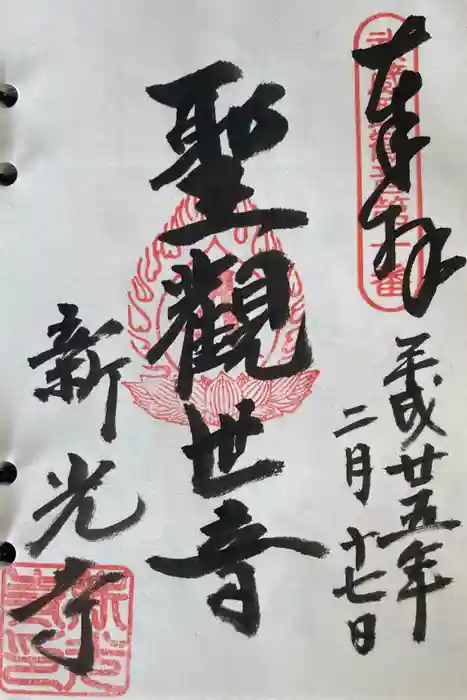 奉拜
平成廿五年
二月十七日
聖觀世音
新光寺